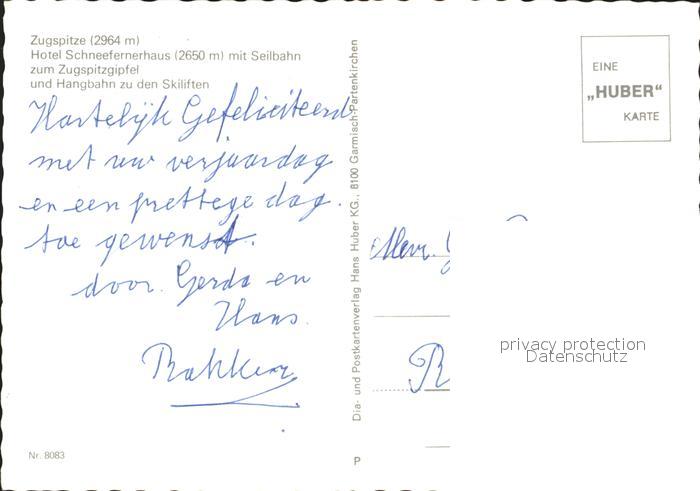 Zugspitze (2964 m)
Hotel Schneefernerhaus (2650 m) mit Seilbahn
zum Zugspitzgipfel
und Hangbahn zu den Skiliften
Hartelijk Gefeliciteerd
met uw verjaardag
en een prettege dag.
toe gewenst.
door. Gerda en
Hans.
Bakker
Nr. 8083
Dia- und Postkartenverlag Hans Huber KG., 8100 Garmisch-Partenkirchen
P
EINE
„HUBER“
KARTE
Mevr.
privacy protection
Datenschutz